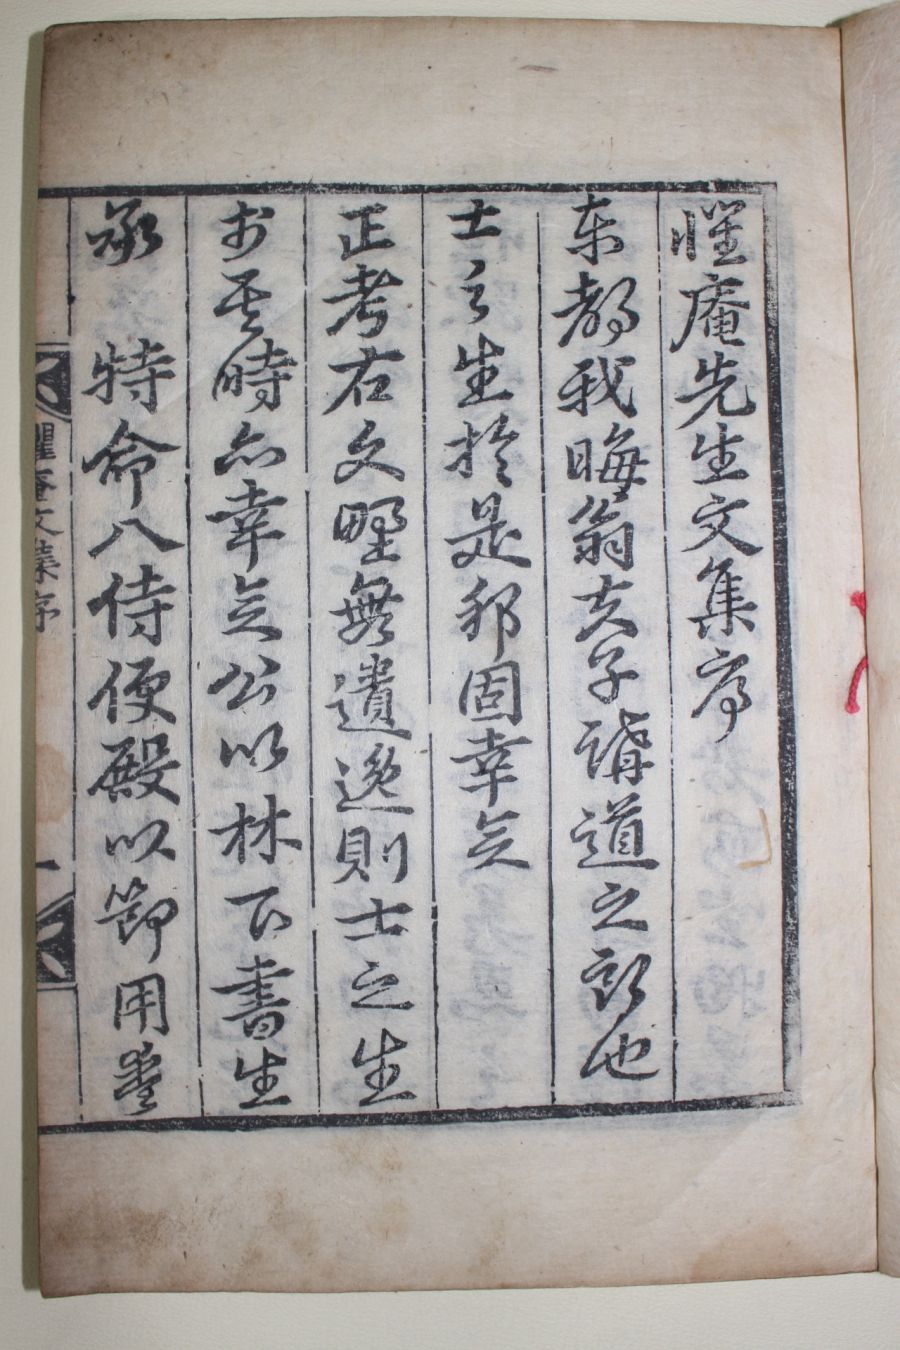 懼庵先生文集序
東都我晦翁夫子講道之鄕也
士之生於是邦固幸矣
正考右文野無遺逸則士之生
於其時亦幸矣公以林下書生
承 特命入侍便殿以節用愛
懼庵文集序 一